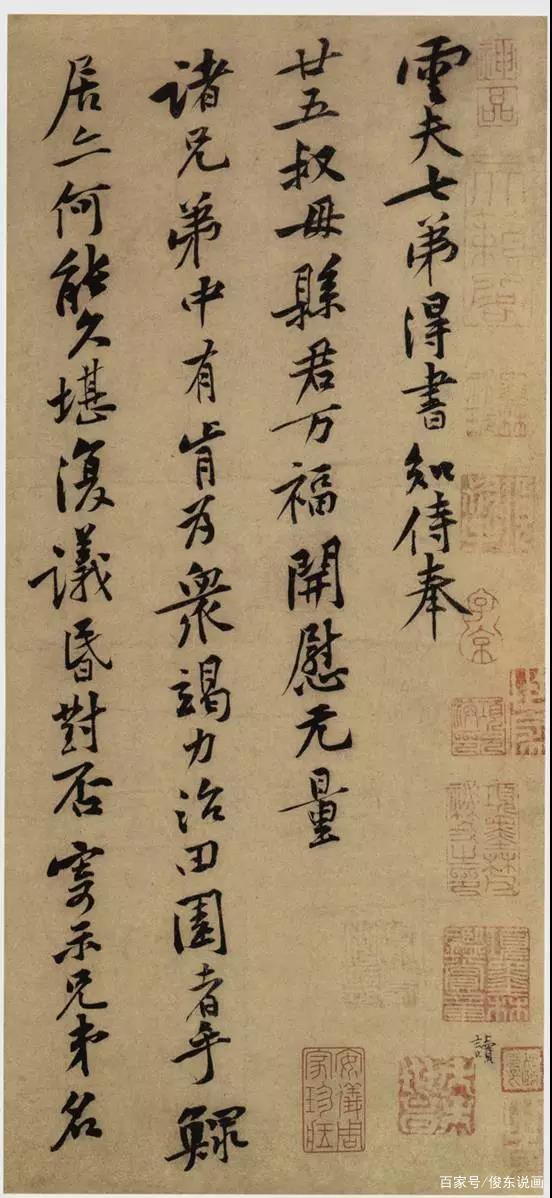 雲夫七弟得書知侍奉
廿五叔母縣君万福開慰无量
諸兄弟中有肯為衆竭力治田園者乎鰥
居亦何能久堪復議昏對否寄示兄弟名
讀
神品
安儀周家珍藏
百家号/俊东说画